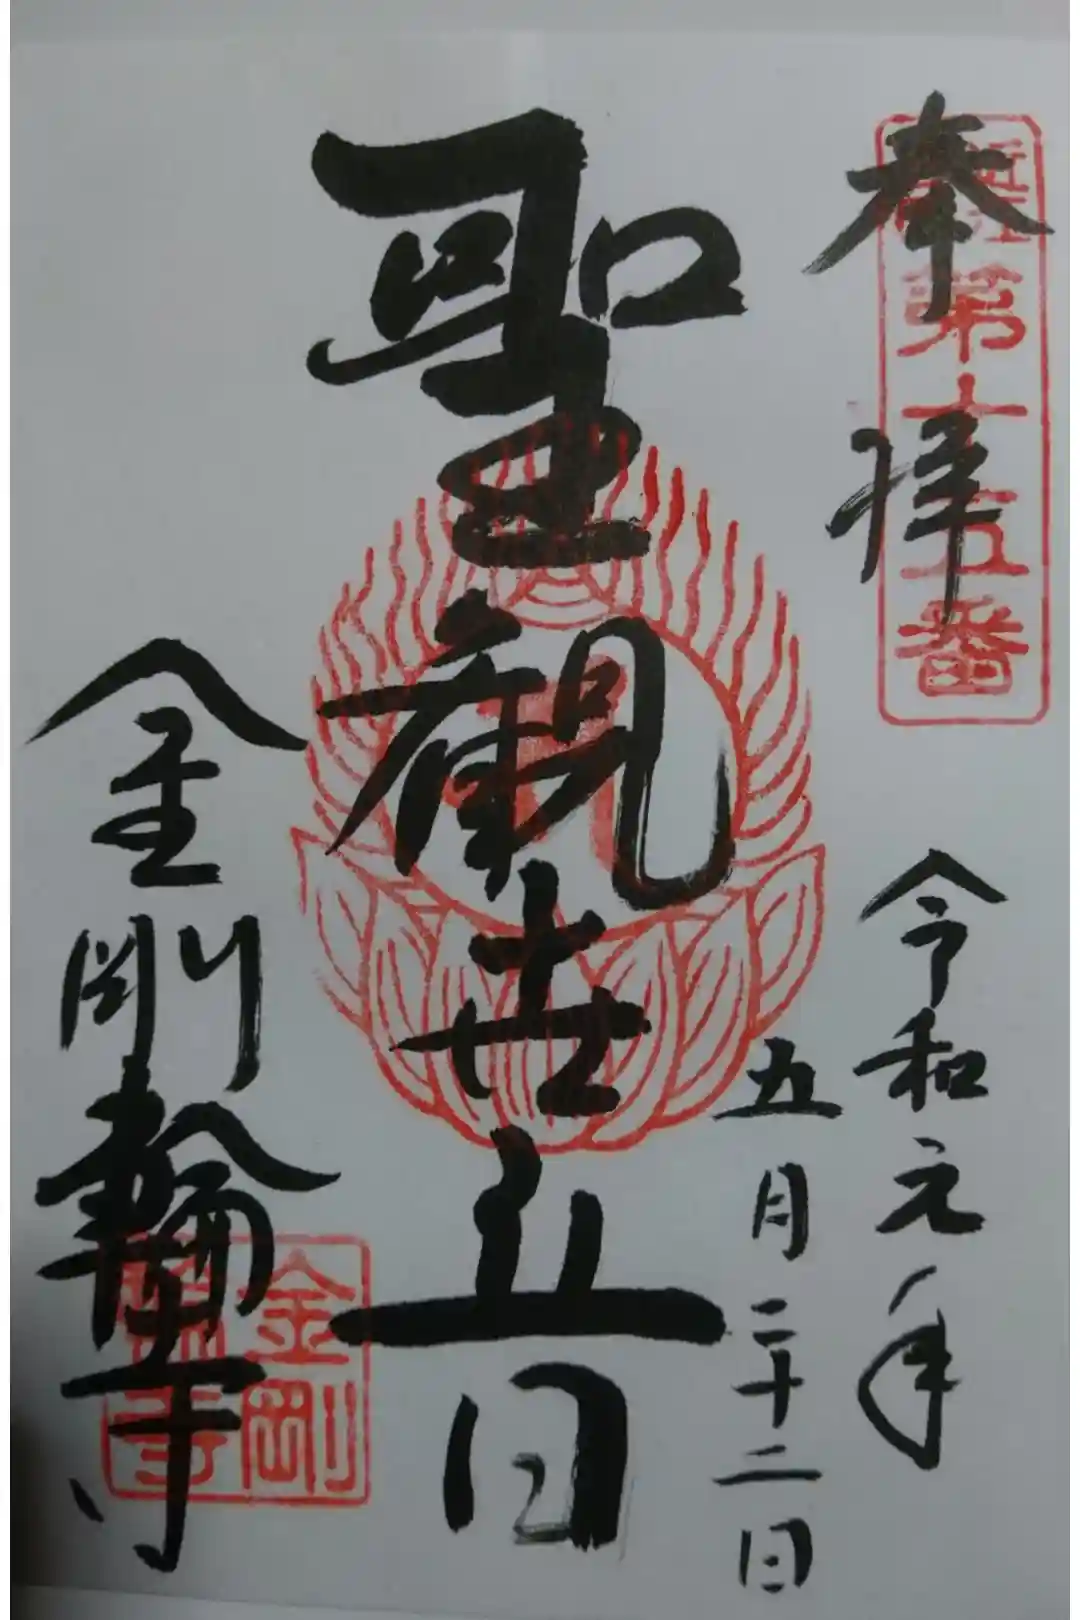 奉拝
近江
第十五番
令和元年
五月二十二日
聖観世音
金剛輪寺
金剛
輪寺